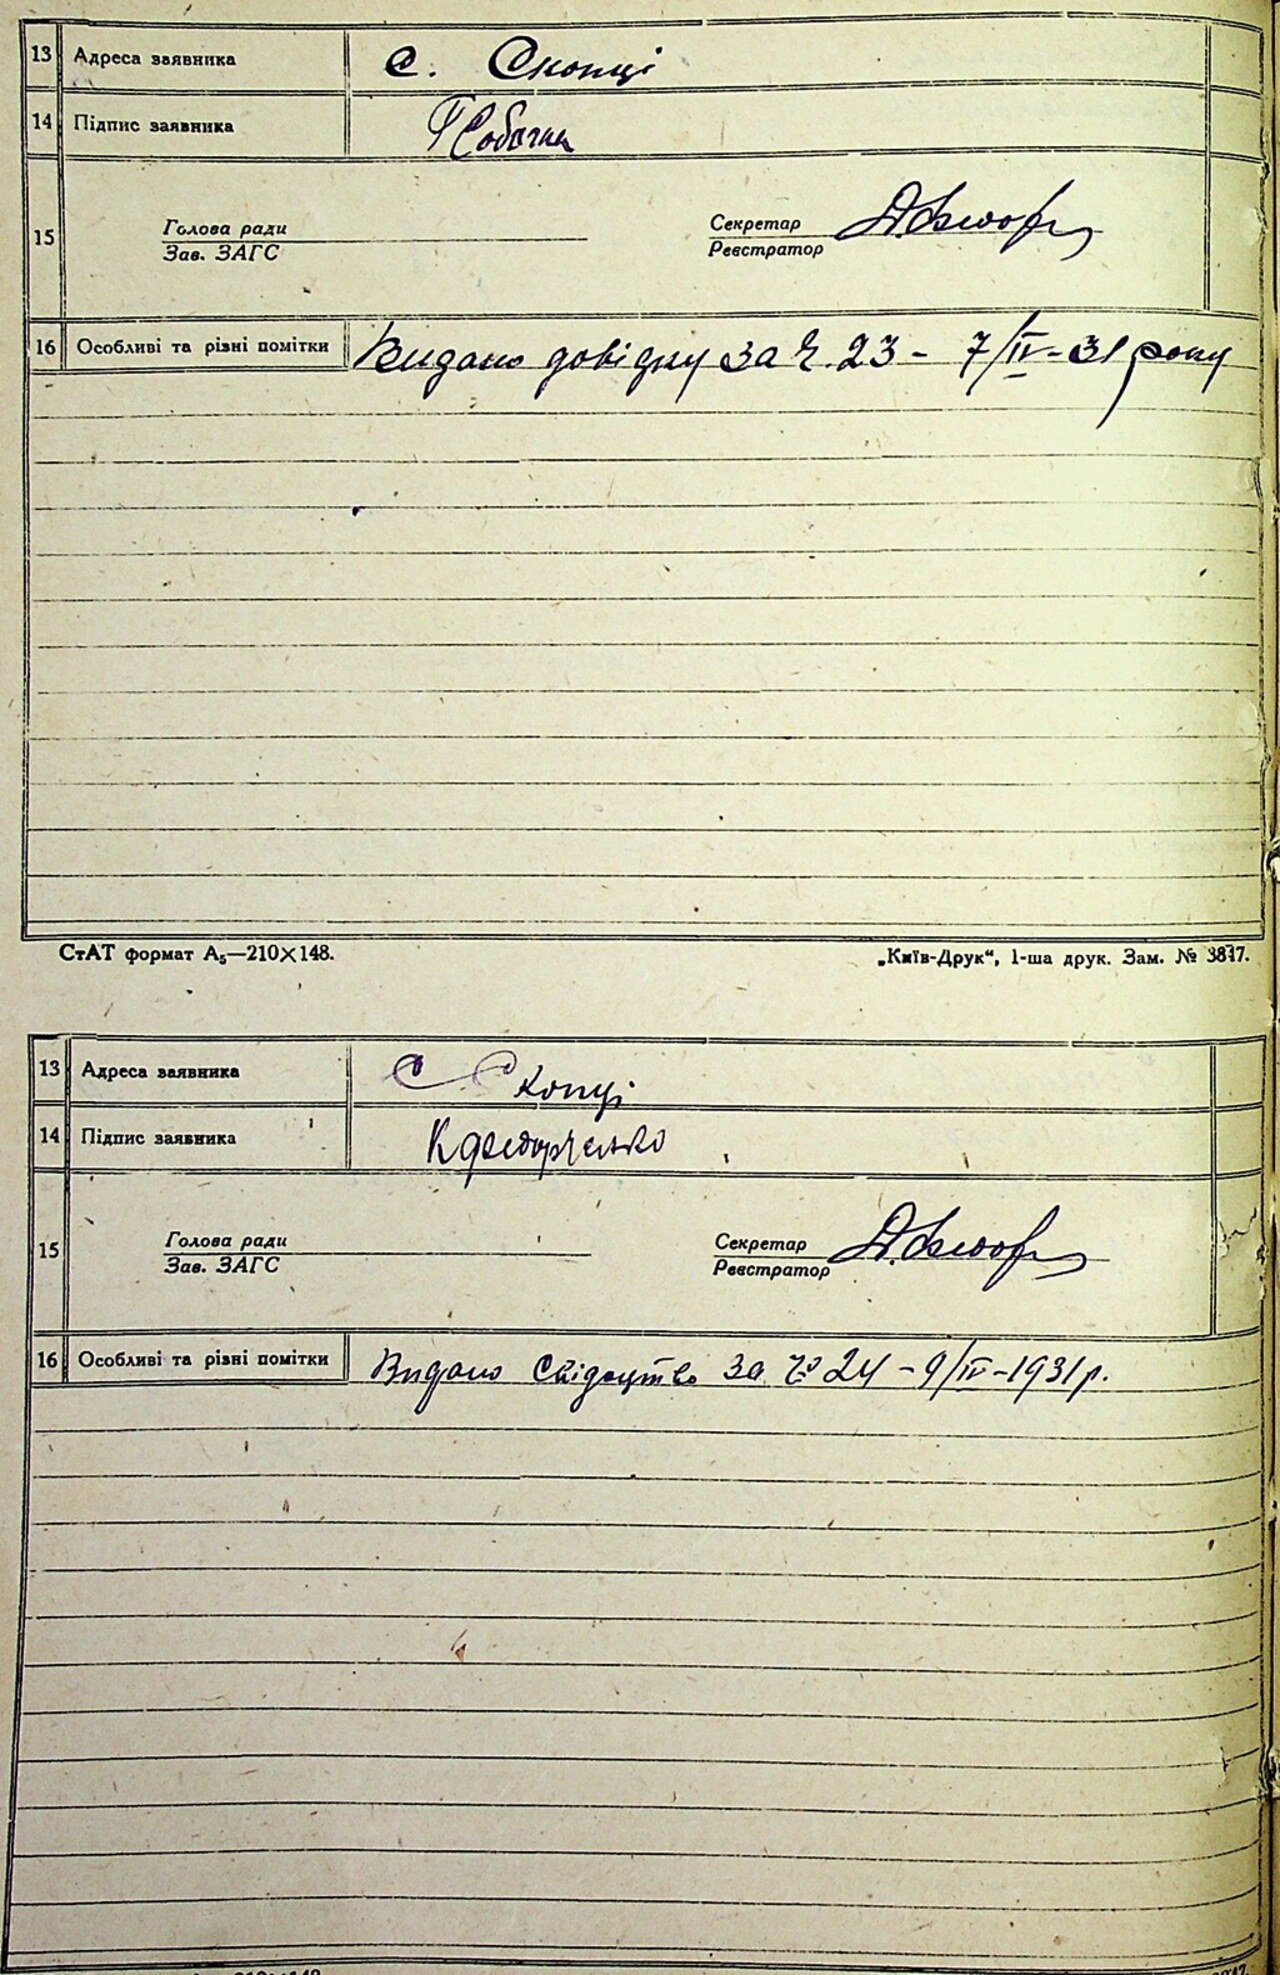 13 Адреса заявника с. Скопці
14 Підпис заявника
15 Голова ради Секретар
Зав. ЗАГС Реєстратор
16 Особливі та різні помітки Видано довідку за ч. 23 - 7/IV - 31 року
СтАТ формат А₅—210×148. „Київ-Друк“, 1-ша друк. Зам. № 3817.
13 Адреса заявника С. Скопці
14 Підпис заявника К Федорченко
15 Голова ради Секретар
Зав. ЗАГС Реєстратор
16 Особливі та різні помітки Видано Свідоцтво за № 24 - 9/IV - 1931 р.